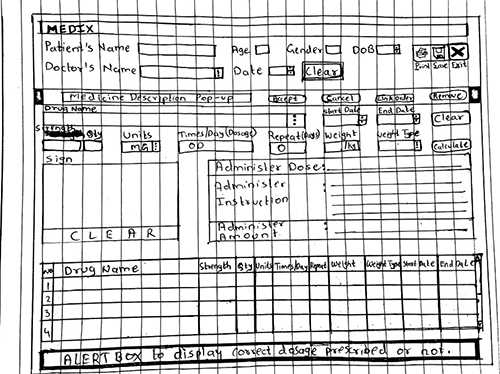 MEDIX
Patient's Name Age Gender DOB
Doctor's Name Date Clear Print Save Exit
Medicine Description Pop-up Accept Cancel Remove
Drug Name Start Date End Date Clear
Strength Qty Units Times/Day(Dosage) Repeat(Days) Weight Weight Type
MG OD 0 /kg Calculate
Sign
Administer Dose:
Administer
Instruction
Administer
Amount
CLEAR
No Drug Name Strength Qty Units Times/Day Repeat Weight Weight Type Start Date End Date
1
2
3
4
ALERT BOX to display correct dosage prescribed or not.